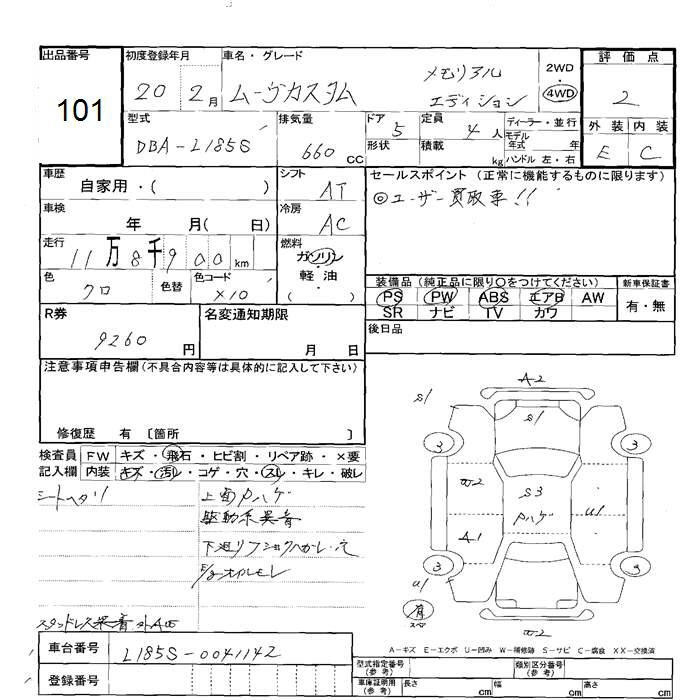 出品番号
101
初度登録年月
20 2月
車名・グレード
ムーヴカスタム
メモリアル
エディション
2WD
・
4WD
評価点
2
外装 内装
E C
型式
DBA-L185S
排気量
660 CC
ドア 5
形状
定員 4 人
積載 kg
ディーラー・並行
モデル
年式 年
ハンドル 左・右
車歴
自家用・( )
シフト
AT
セールスポイント (正常に機能するものに限ります)
◎ユーザー買取車!!
車検
年 月( 日)
冷房
AC
走行
11万8千900km
燃料
ガソリン
・
軽・油
( )
色
クロ
色替
色コード
X10
装備品 (純正品に限り○をつけてください)
PS PW ABS エアB AW
SR ナビ TV カワ
新車保証書
有・無
R券
9260 円
名変通知期限
月 日
後日品
注意事項申告欄 (不具合内容等は具体的に記入して下さい)
修復歴 有 〔箇所 〕
検査員
記入欄
FW キズ・飛石・ヒビ割・リペア跡・×要
内装 キズ・汚レ・コゲ・穴・スレ・キレ・破レ
シートヘタリ
上面Pハゲ
駆動系異音
E/gオイルモレ
A2
S1
S1
3
3
W2
S3
Pハゲ
U1
A1
3
3
U1
有
スペア
W2
A-キズ E-エクボ U-凹み W-補修跡 S-サビ C-腐食 XX-交換済
車台番号
L185S-0041142
登録番号
型式指定番号
(参考)
類別区分番号
(参考)
車庫証明用
(参考)
長さ cm
幅 cm
高さ cm